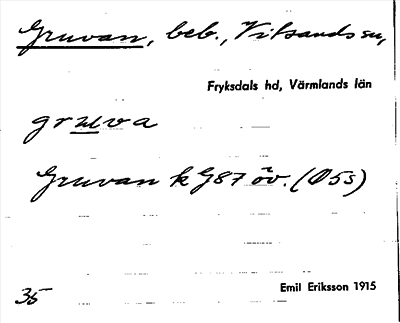 Gruvan, beb., Vitsands sn,
Fryksdals hd, Värmlands län
gruva
Gruvan k G87 öv. (Ö5s)
35
Emil Eriksson 1915